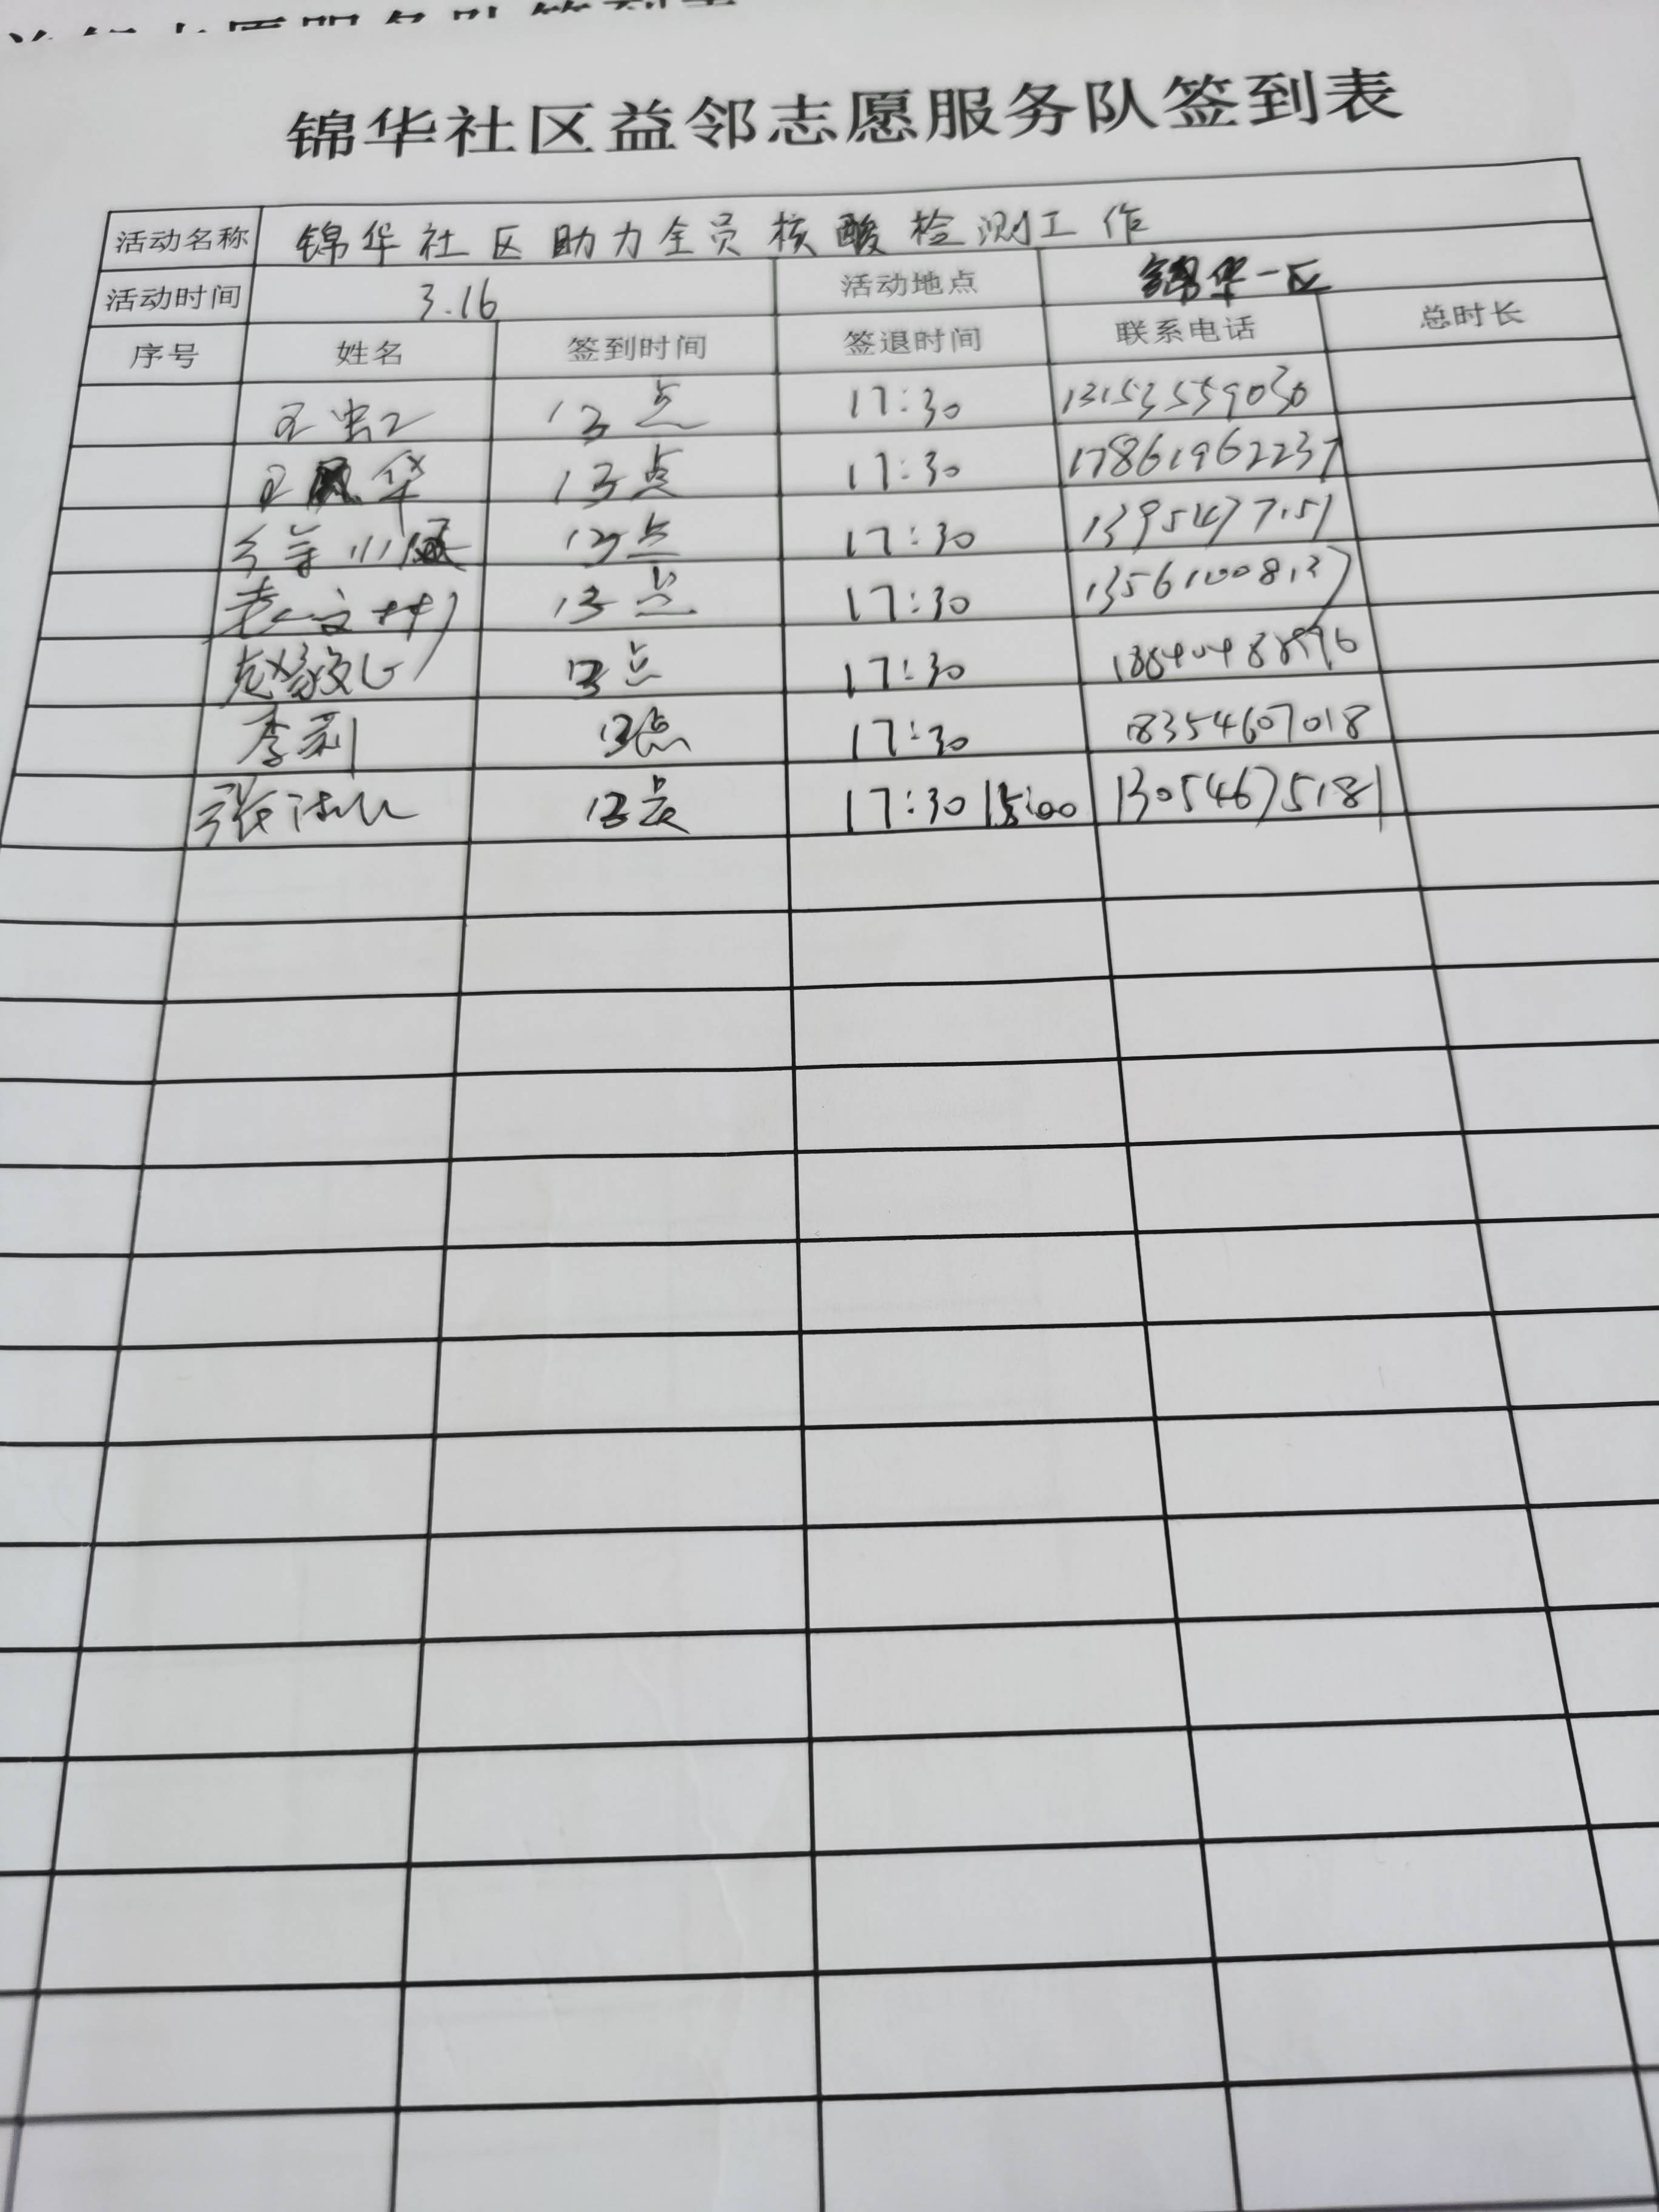 锦华社区益邻志愿服务队签到表
活动名称 锦华社区助力全员核酸检测工作
活动时间 3.16 活动地点 锦华一区
序号 姓名 签到时间 签退时间 联系电话 总时长
王 13点 17:30 13153559030
王凤华 13点 17:30 17861962237
13点 17:30
13点 17:30
赵 13点 17:30
李莉 13点 17:30 18354607018
张 13点 17:30 15:00 13054675181